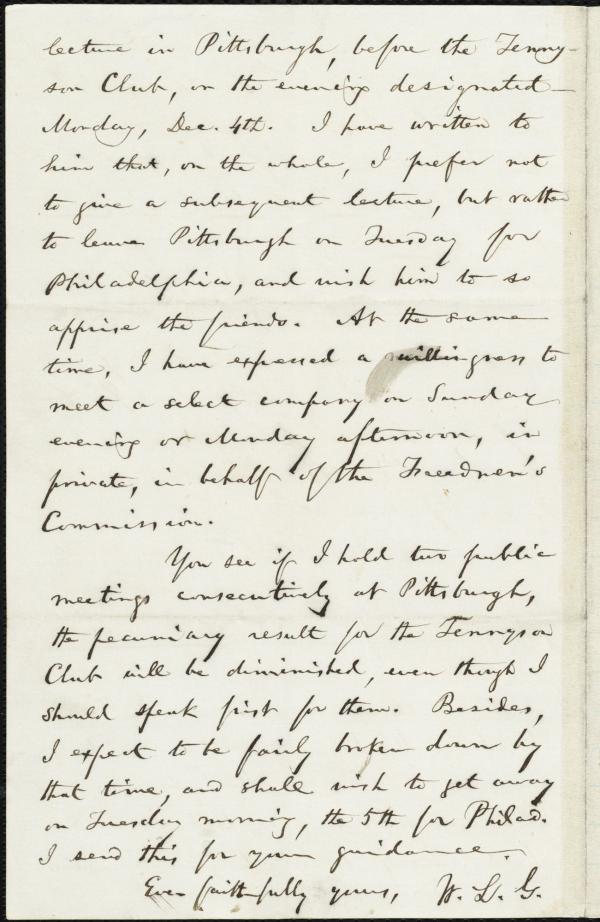 lecture in Pittsburgh, before the Tenny-
son Club, on the evening designated—
Monday, Dec. 4th. I have written to
him that, on the whole, I prefer not
to give a subsequent lecture, but rather
to leave Pittsburgh on Tuesday for
Philadelphia, and wish him to so
apprise the friends. At the same
time, I have expressed a willingness to
meet a select company on Sunday
evening or Monday afternoon, in
private, in behalf of the Freedmen's
Commission.
You see if I hold two public
meetings consecutively at Pittsburgh,
the pecuniary result for the Tennyson
Club will be diminished, even though I
should speak first for them. Besides,
I expect to be fairly broken down by
that time, and shall wish to get away
on Tuesday morning, the 5th for Philad.
I send this for your guidance.
Ever faithfully yours, W. L. G.